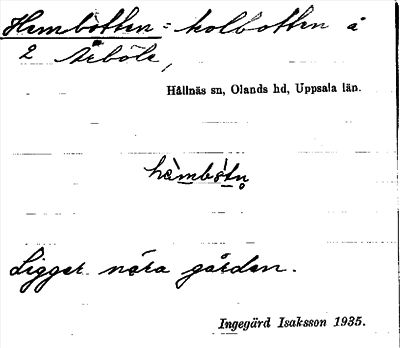 Hembotten = kolbotten å
2 Årböle,
Hållnäs sn, Olands hd, Uppsala län.
Ligger nära gården.
Ingegärd Isaksson 1935.